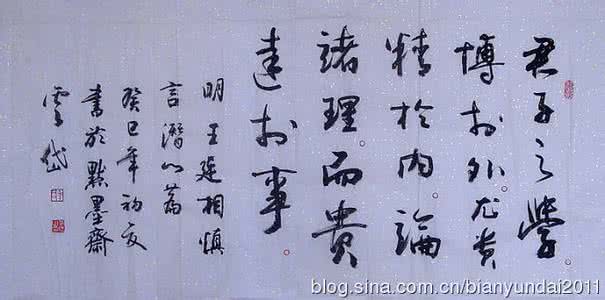 君子之學。
博扵外。尤貴
精於內。論
諸理。而貴
達扵事。
明王廷相慎
言潛心篇
癸巳年初夏
書於點墨齋
雲岱
blog.sina.com.cn/bianyundai2011